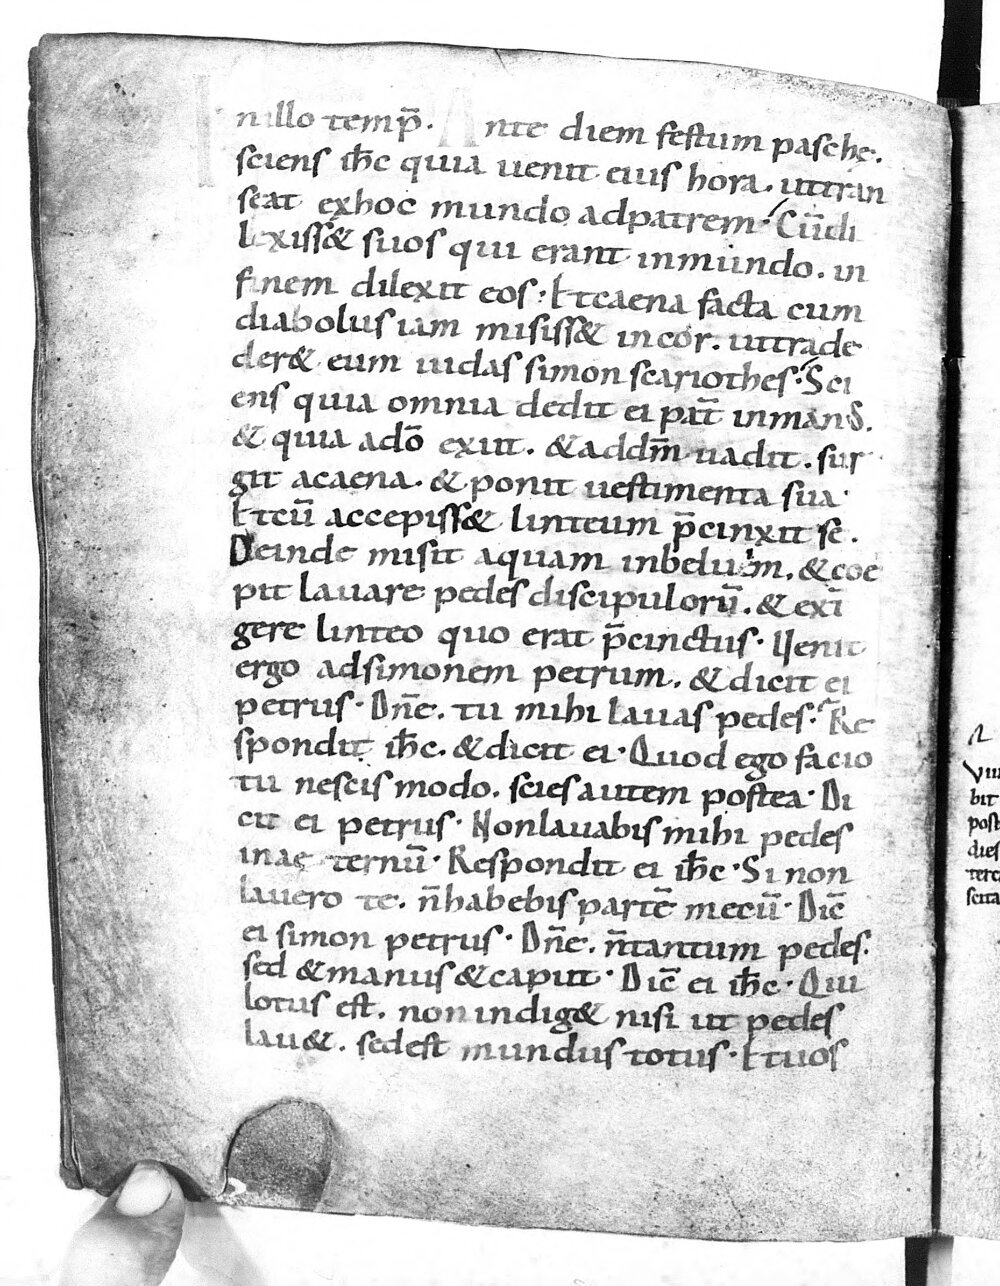 In illo temp̄. Ante diem festum paschę.
sciens ih̄c quia uenit eius hora. uttran
seat exhoc mundo adpatrem· Cū di
lexiss& suos qui erant inmundo. in
finem dilexit eos· Etcaena facta cum
diabolus iam misiss& incor. uttrade
der& eum iudas simon scariothes· Sci
ens quia omnia dedit ei pat̄ inman'.
& quia adō exiit. & addm̄ uadit. sur
git acaena. & ponit uestimenta sua·
Etcū accepiss& linteum p̄cinxit se.
Deinde misit aquam inbeluim. & coe
pit lauare pedes discipulorū. & exī
gere linteo quo erat p̄cinctus· Uenit
ergo adsimonem petrum. & dicit ei
petrus· Dn̄e. tu mihi lauas pedes· Re
spondit ih̄c. & dicit ei· Quod ego facio
tu nescis modo. scies autem postea· Di
cit ei petrus· Nonlauabis mihi pedes
inae ternū· Respondit ei ih̄c· Si non
lauero te. n̄habebis partē mecū· Dic̄
ei simon petrus· Dn̄e. n̄tantum pedes.
sed & manus & caput· Dic̄ ei ih̄c· Qui
lotus est. non indig& nisi ut pedes
lau&. sedest mundus totus· Etuos
bit
dies